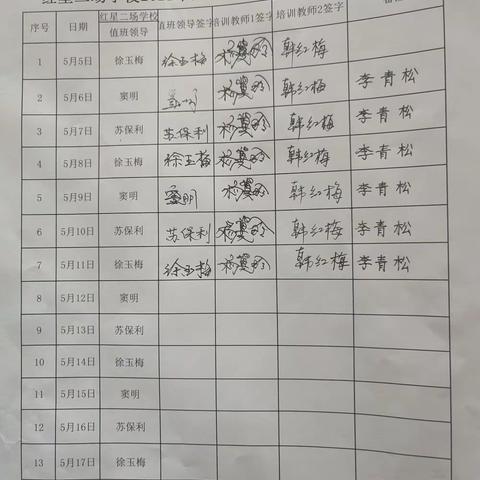 红星二场学校
序号 日期 红星二场学校值班领导 值班领导签字 培训教师1签字 培训教师2签字
1 5月5日 徐玉梅 徐玉梅 韩红梅
2 5月6日 窦明 韩红梅 李青松
3 5月7日 苏保利 苏保利 韩红梅 李青松
4 5月8日 徐玉梅 徐玉梅 韩红梅 李青松
5 5月9日 窦明 窦明 韩红梅 李青松
6 5月10日 苏保利 苏保利 韩红梅 李青松
7 5月11日 徐玉梅 徐玉梅 韩红梅 李青松
8 5月12日 窦明
9 5月13日 苏保利
10 5月14日 徐玉梅
11 5月15日 窦明
12 5月16日 苏保利
13 5月17日 徐玉梅